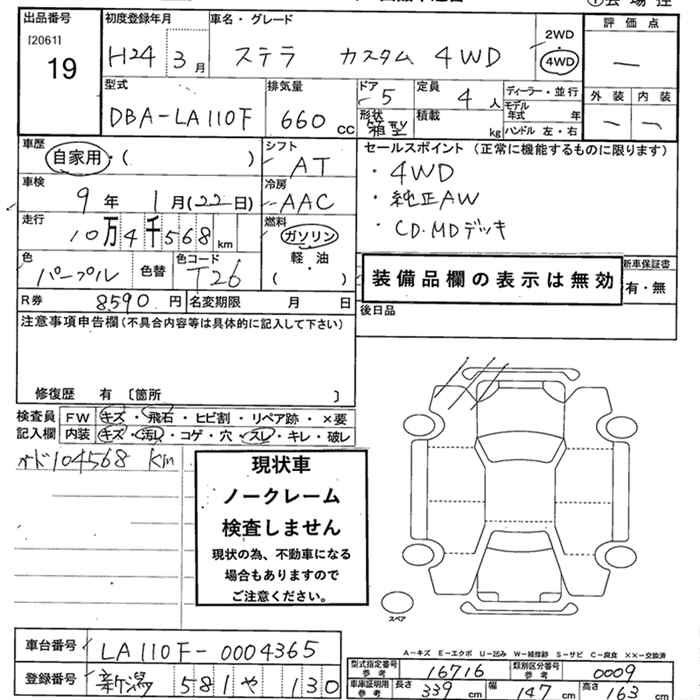 出品番号 初度登録年月 車名・グレード 評価点
[20611]
19
H24 3月 ステラ カスタム 4WD 2WD 4WD
型式 排気量 ドア 定員 ディーラー・並行 外装 内装
DBA-LA110F 660cc 5 4人
形状 箱型 積載 kg モデル年式 年 ハンドル 左・右
車歴 自家用・( ) シフト AT
車検 9年 1月(22日) 冷房 AAC
走行 10万4千568km 燃料 ガソリン 軽・油 ( )
色 パープル 色替 色コード T26
R券 8590円 名変期限 月 日
セールスポイント (正常に機能するものに限ります)
・4WD
・純正AW
・CD・MDデッキ
装備品欄の表示は無効
新車保証書
有・無
後日品
注意事項申告欄(不具合内容等は具体的に記入して下さい)
修復歴 有 〔箇所 〕
検査員 FW キズ・飛石・ヒビ割・リペア跡・×要
記入欄 内装 キズ・汚レ・コゲ・穴・スレ・キレ・破レ
104568 Km
現状車
ノークレーム
検査しません
現状の為、不動車になる
場合もありますので
ご注意ください。
スペア
A-キズ E-エクボ U-凹み W-補修跡 S-サビ C-腐食 XX-交換済
車台番号 LA110F-0004365
登録番号 新潟 581 や 130
型式指定番号 参考 16716 類別区分番号 参考 0009
車庫証明用 参考 長さ 339cm 幅 147cm 高さ 163cm